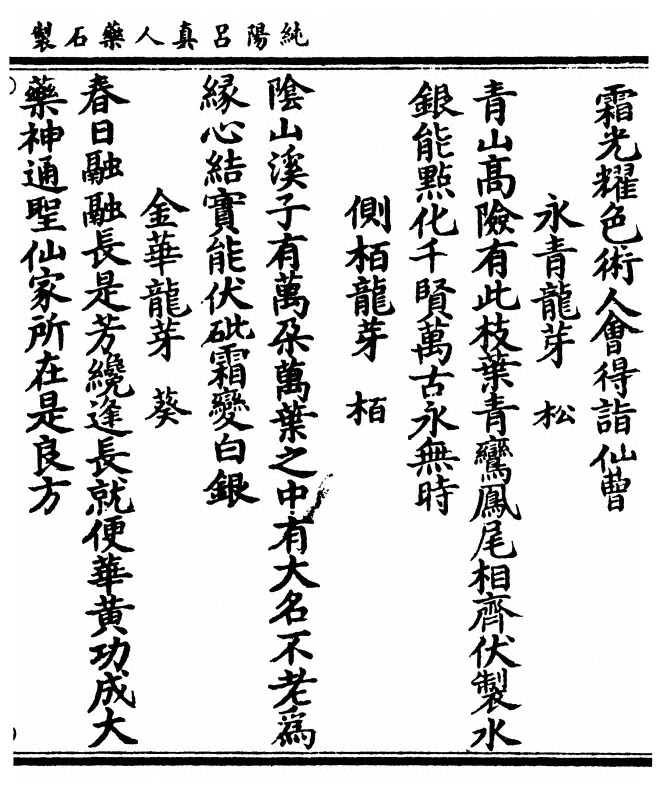 純陽呂真人藥石製
霜光耀色術人會得詣仙曹
永青龍芽　松
青山高險有此枝葉青鸞鳳尾相齊伏製水
銀能點化千賢萬古永無時
側栢龍芽　栢
陰山溪子有萬朶萬葉之中有大名不老為
緣心結實能伏砒霜變白銀
金華龍芽　葵
春日融融長是芳纔逢長就便華黃功成大
藥神通聖仙家所在是良方